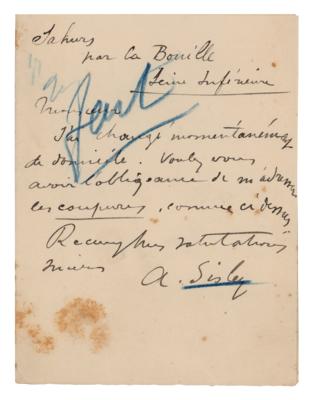 Sahurs
par la Bouille
Seine Inférieure
Monsieur
J'ai changé momentanément
de domicile. Voulez vous
avoir l'obligeance de m'adresser
les coupures, comme ci dessus.
Recevez mes salutations
A. Sisley